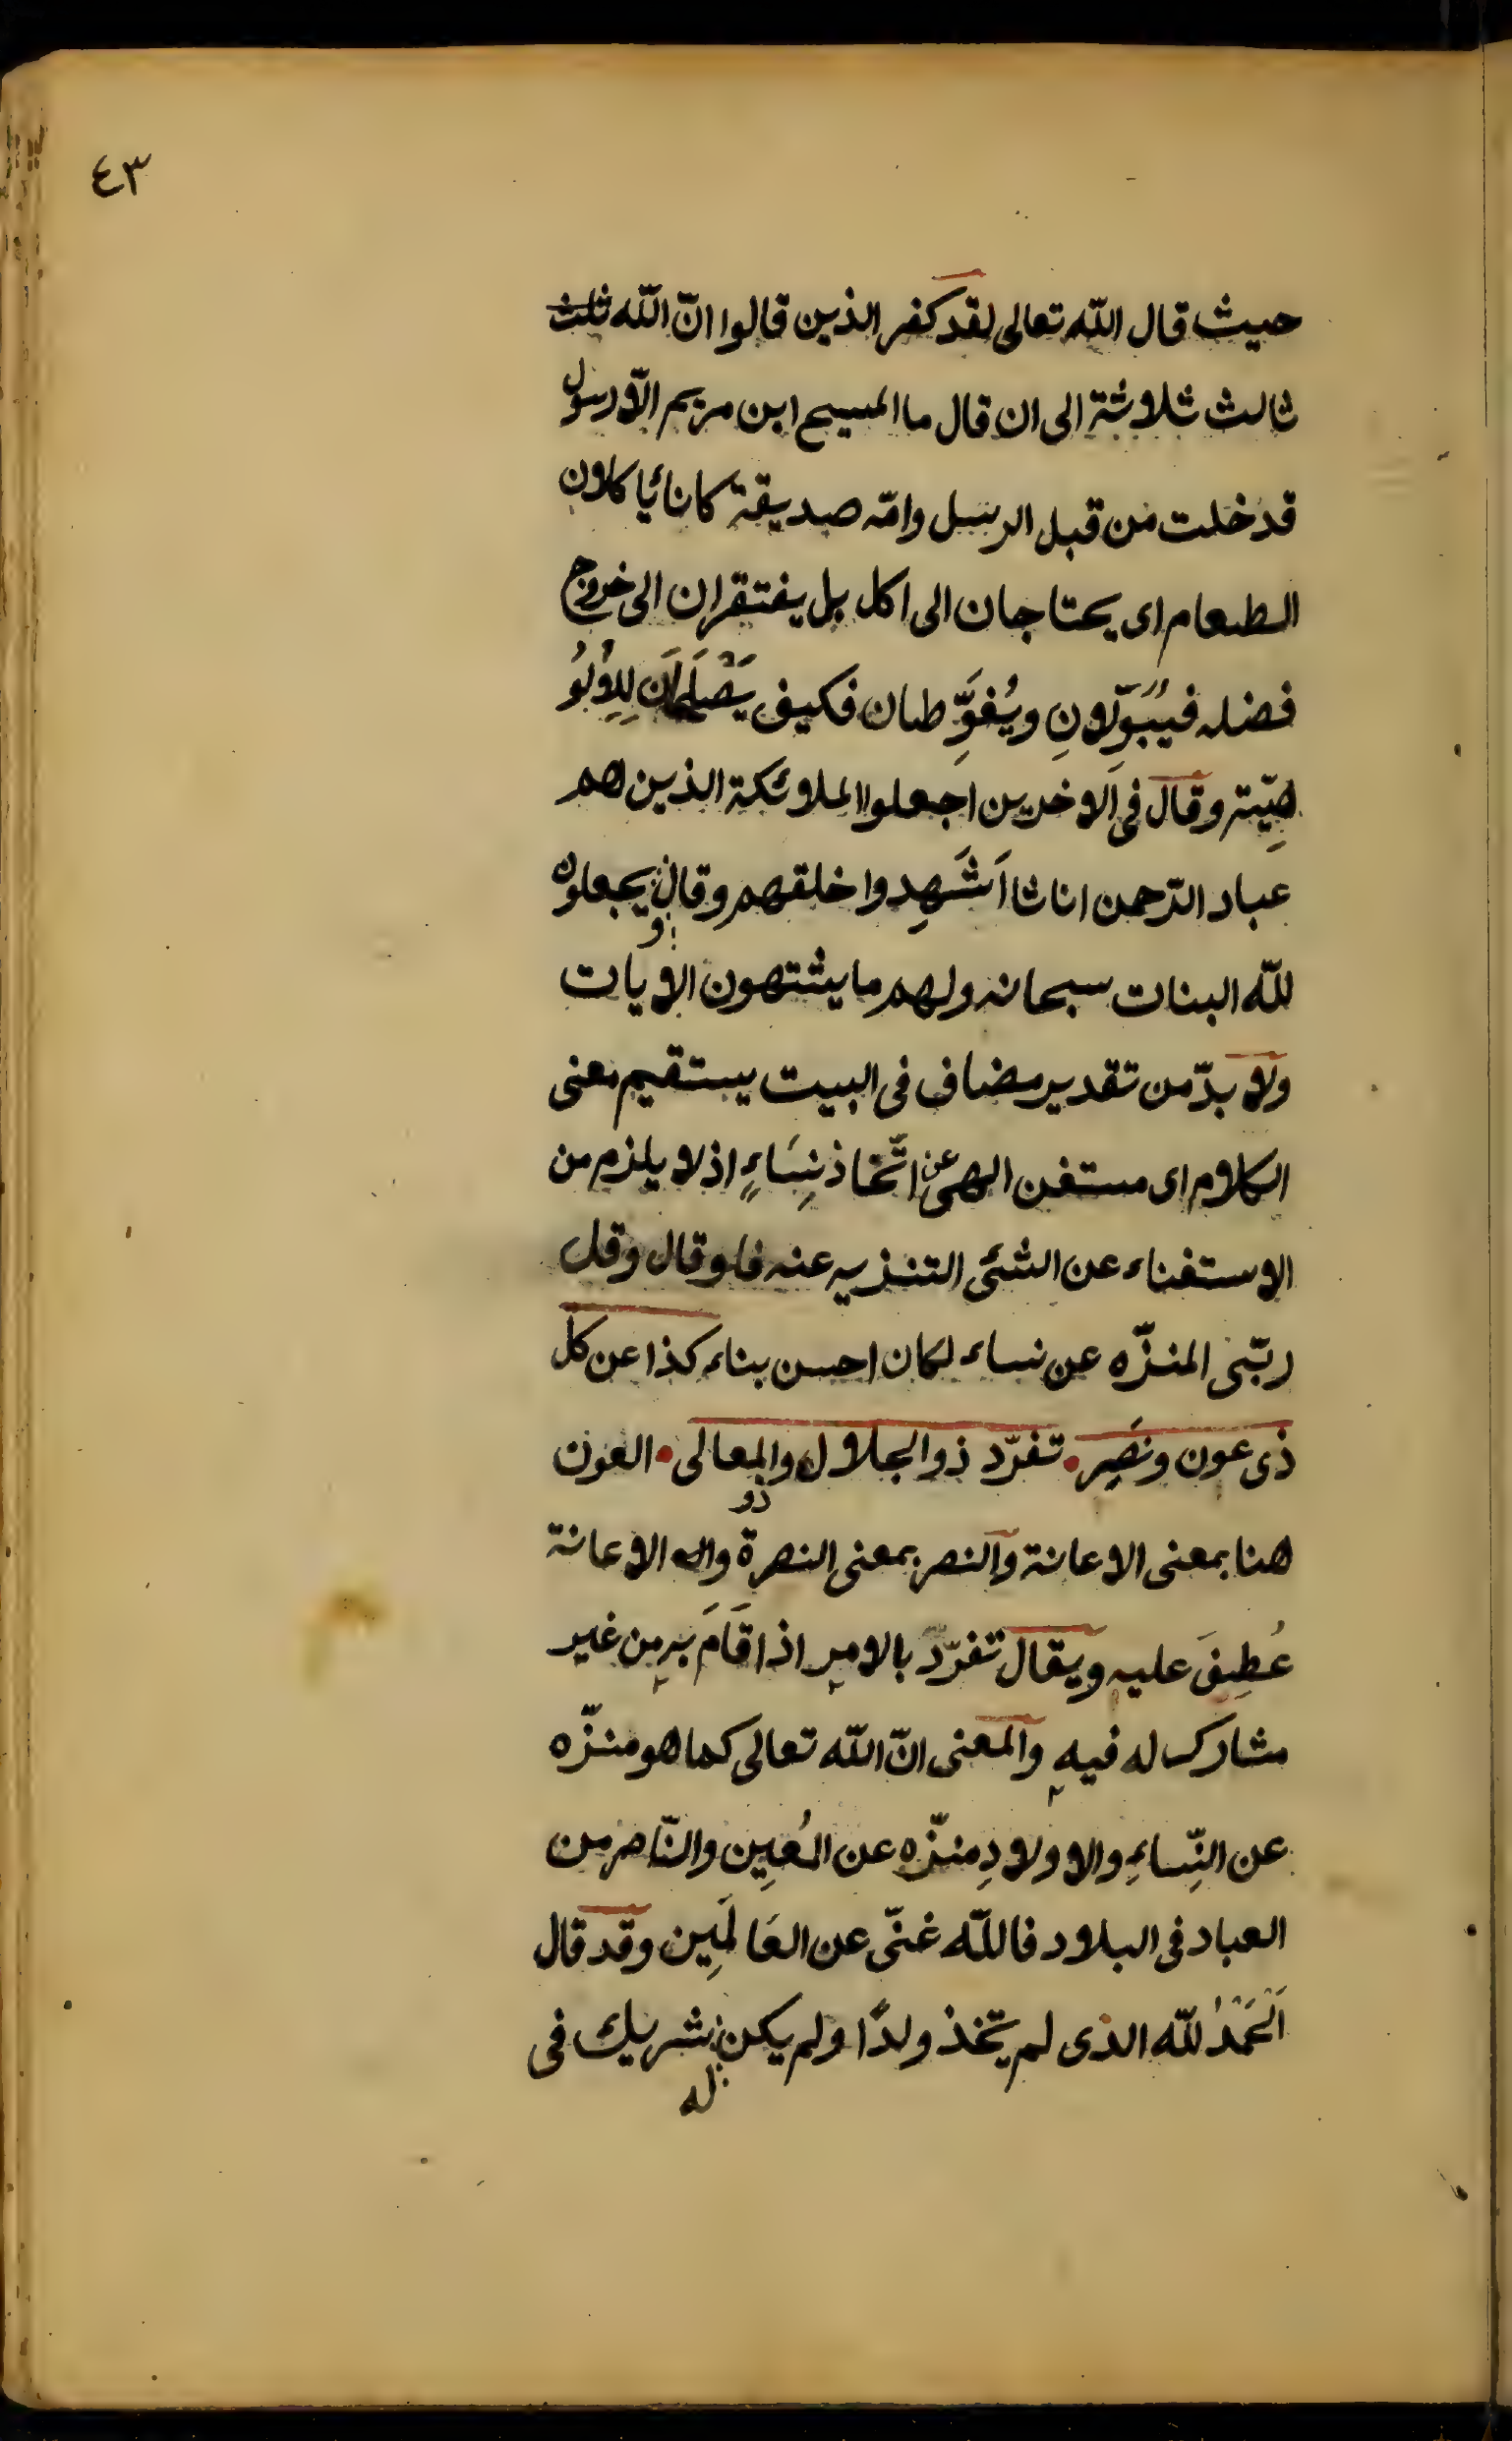 ٤٣
حيث قال الله تعالى لقد كفر الذين قالوا انّ الله ثلث
ثالث ثلاثة الى ان قال ما المسيح ابن مريم الّا رسول
قد خلت من قبل الرسل وامّه صديقة كانا يأكلان
الطعام اى يحتاجان الى اكل بل يفتقران الى خروج
فضله فيُبَوِّلانِ ويُغَوِّطان فكيف يَصْلَحَان لِلِاُلُو
هِيّته وقال فى الاخرين اجعلوا الملائكة الذين هم
عباد الرّحمن اناثا اَشَهِدوا خلقهم وقال ويجعلون
لله البنات سبحانه ولهم ما يشتهون الايات
ولا بدّ من تقدير مضاف فى البيت يستقيم معنى
الكلام اى مستغن الهى عن اتّخاذ نِسَاءٍ اذ لا يلزم من
الاستغناء عن الشئ التنزيه عنه فلو قال وقل
ربّى المنزّه عن نساء لكان احسن بناء كذا عن كل
ذى عون ونَصِر • تفرّد ذو الجلال وذو المعالى • العون
هنا بمعنى الاعانة والنصر بمعنى النصرة واله الاعانة
عُطِفَ عليه ويقال تفرّد بالامر اذا قَامَ به من غير
مشارك له فيه والمعنى انّ الله تعالى كما هو منزّه
عن النِّساءِ والاولادِ منزّه عن المُعِين والنّاصر من
العباد فى البلاد فالله غنّى عن العَالمَين وقد قال
اَلْحَمْدُ لله الذى لم يتخذ ولدًا ولم يكن له شريك فى